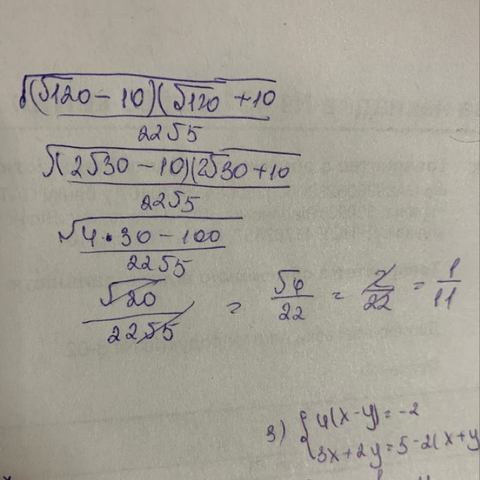 √(√120 - 10)(√120 + 10)
22√5
√(2√30 - 10)(2√30 + 10)
22√5
√4 · 30 - 100
22√5
√20 / 22√5 = √4 / 22 = 2 / 22 = 1 / 11
3) { 4(x-y) = -2
3x + 2y = 5 - 2(x + y